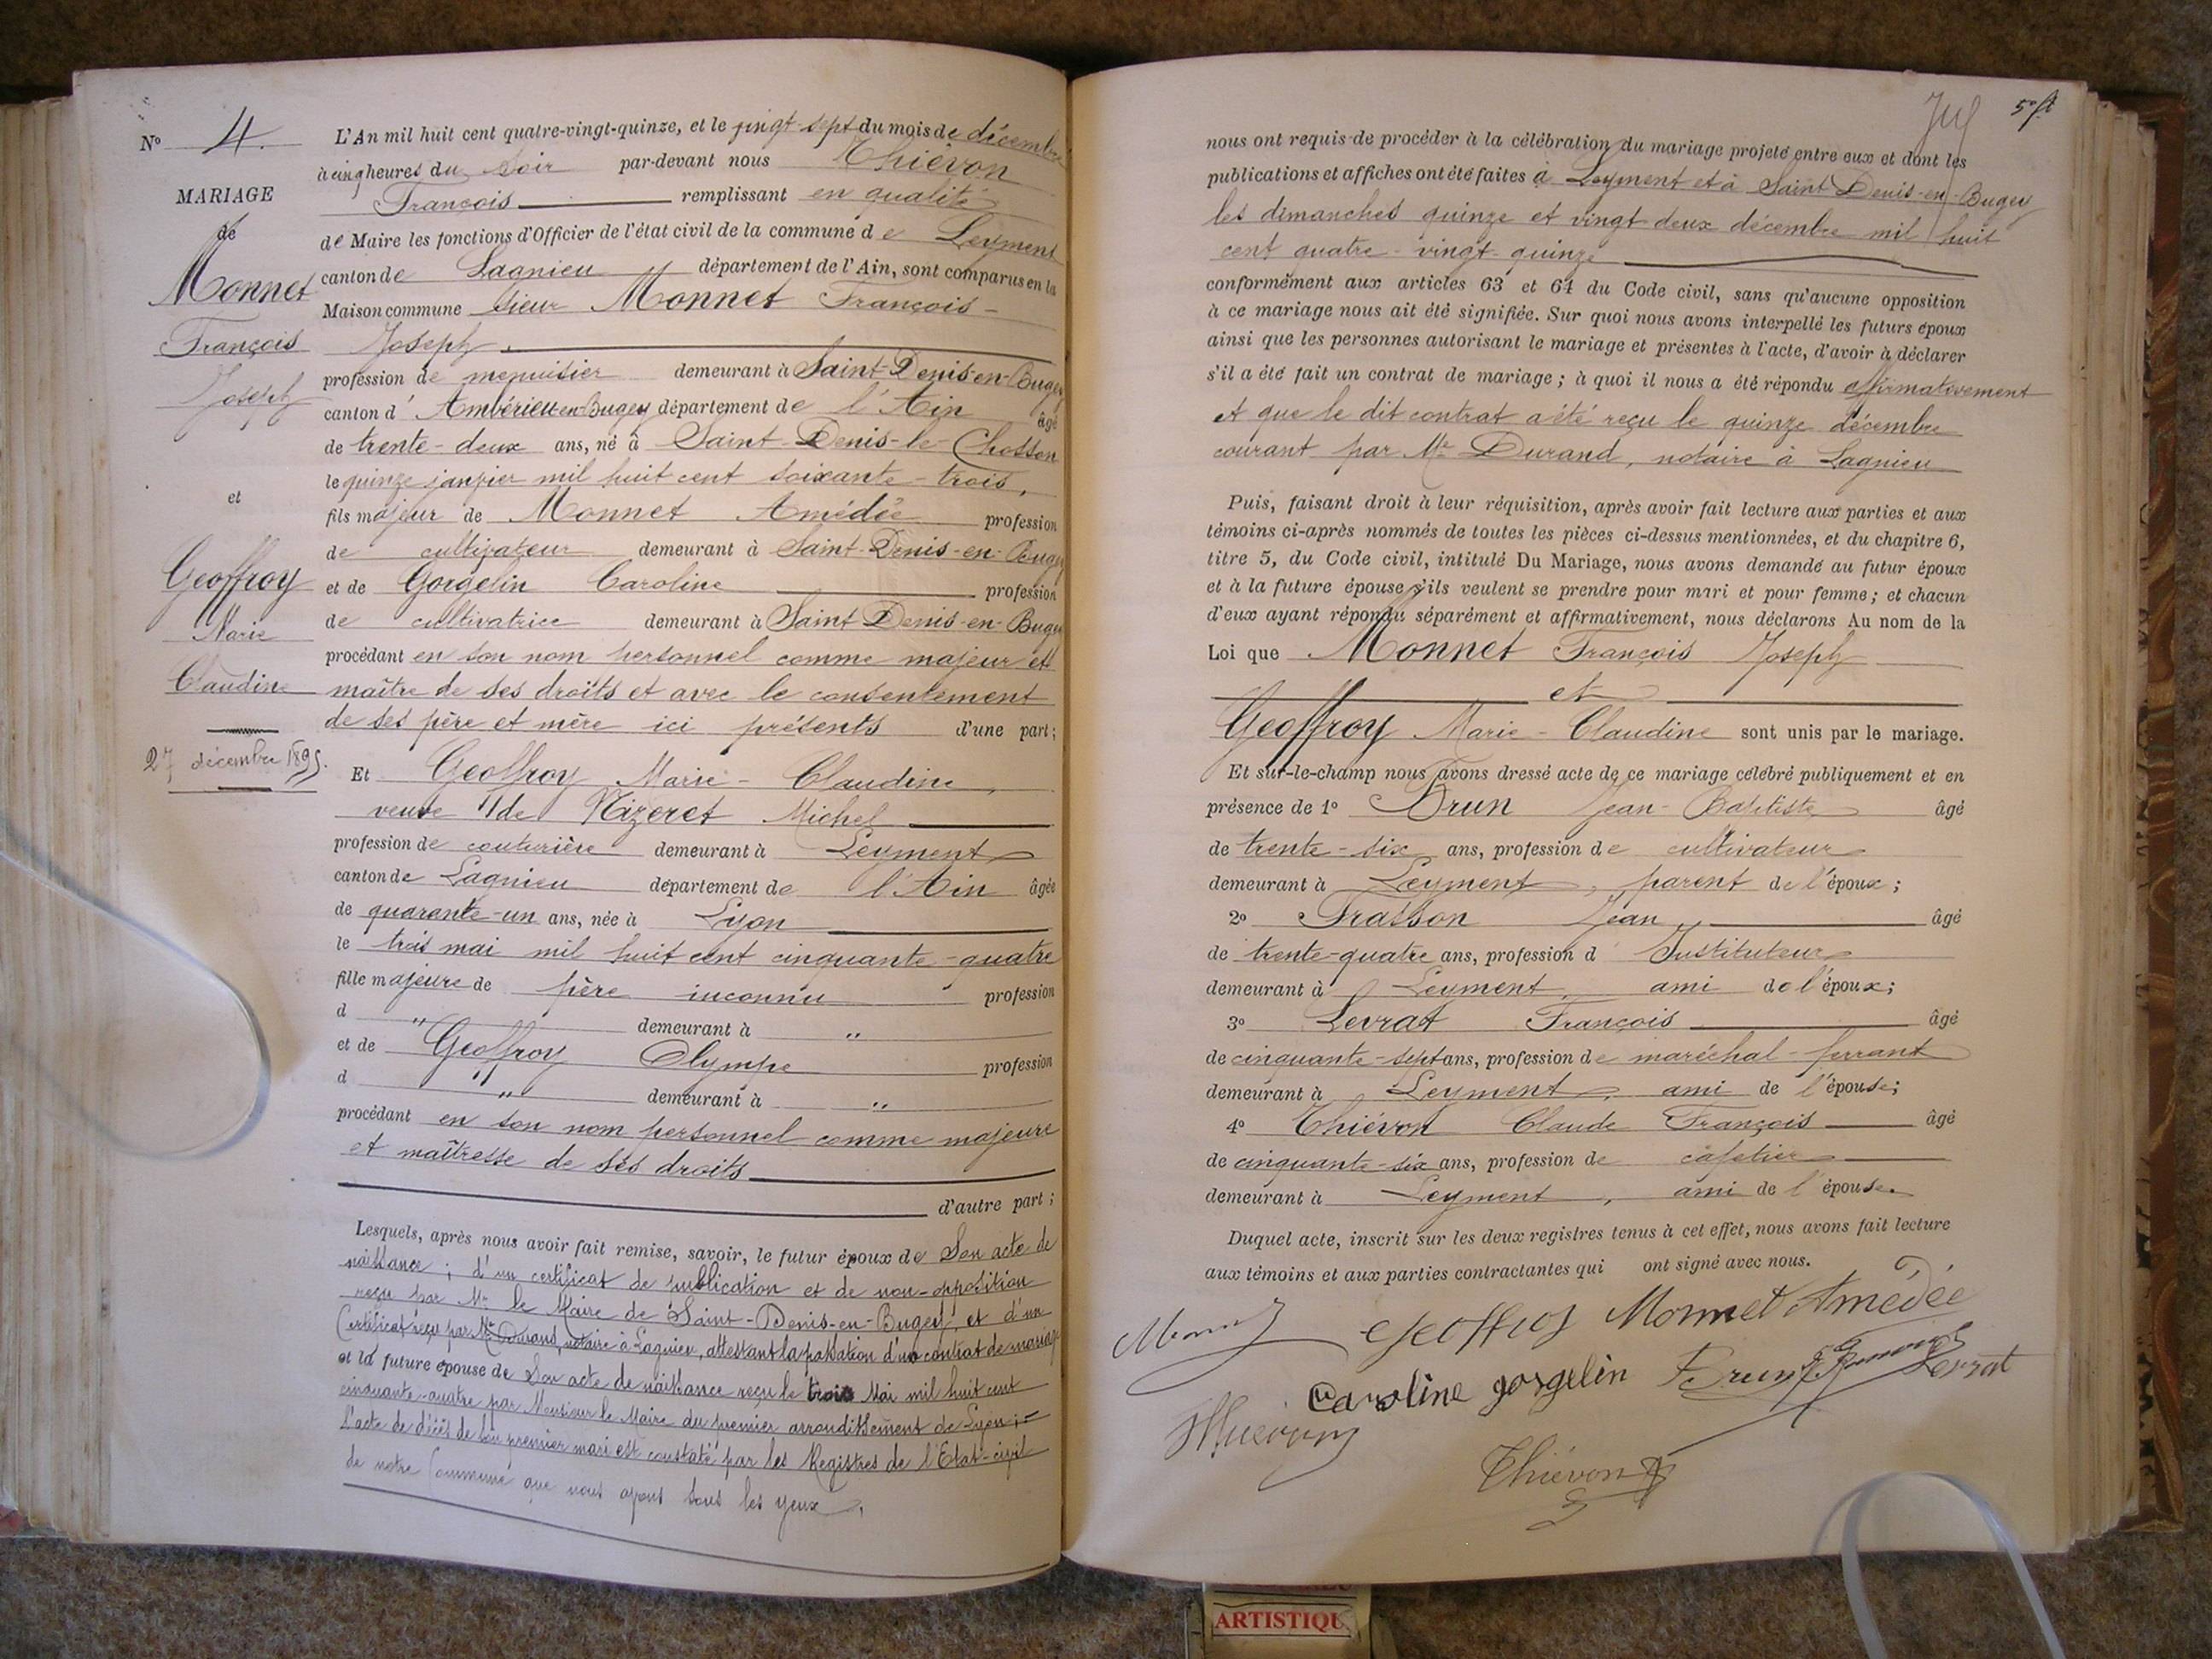 N° 4.
MARIAGE
de
Monnet
François
Joseph
et
Geoffroy
Marie
Claudine
27 décembre 1895.
L'An mil huit cent quatre-vingt-quinze, et le vingt-sept du mois de décembre
à cinq heures du soir par-devant nous Thiévon
François remplissant en qualité
de Maire les fonctions d'Officier de l'état civil de la commune de Leyment
canton de Lagnieu département de l'Ain, sont comparus en la
Maison commune sieur Monnet François-
Joseph.
profession de menuisier demeurant à Saint-Denis-en-Bugey
canton d'Ambérieu-en-Bugey département de l'Ain âgé
de trente-deux ans, né à Saint-Denis-le-Chosson
le quinze janvier mil huit cent soixante-trois,
fils majeur de Monnet Amédée profession
de cultivateur demeurant à Saint-Denis-en-Bugey
et de Gorgelin Caroline profession
de cultivatrice demeurant à Saint Denis-en-Bugey
procédant en son nom personnel comme majeur et
maître de ses droits et avec le consentement
de ses père et mère ici présents d'une part;
Et Geoffroy Marie-Claudine,
veuve de Nizeret Michel
profession de couturière demeurant à Leyment
canton de Lagnieu département de l'Ain âgée
de quarante-un ans, née à Lyon
le trois mai mil huit cent cinquante-quatre
fille majeure de père inconnu profession
d " demeurant à "
et de Geoffroy Olympe profession
d " demeurant à "
procédant en son nom personnel comme majeure
et maîtresse de ses droits
d'autre part;
Lesquels, après nous avoir fait remise, savoir, le futur époux de Son acte de
naissance; d'un certificat de publication et de non-opposition
reçu par Mr le Maire de Saint-Denis-en-Bugey, et d'un
Certificat reçu par Me Durand, notaire à Lagnieu, attestant la passation d'un contrat de mariage
et la future épouse de Son acte de naissance reçu le trois Mai mil huit cent
cinquante-quatre par Monsieur le Maire du premier arrondissement de Lyon;=
l'acte de décès de son premier mari est constaté par les Registres de l'Etat-civil
de notre Commune que nous avons sous les yeux.
5
nous ont requis de procéder à la célébration du mariage projeté entre eux et dont les
publications et affiches ont été faites à Leyment et à Saint Denis-en-Bugey
les dimanches quinze et vingt-deux décembre mil huit
cent quatre-vingt-quinze
conformément aux articles 63 et 64 du Code civil, sans qu'aucune opposition
à ce mariage nous ait été signifiée. Sur quoi nous avons interpellé les futurs époux
ainsi que les personnes autorisant le mariage et présentes à l'acte, d'avoir à déclarer
s'il a été fait un contrat de mariage; à quoi il nous a été répondu affirmativement
et que le dit contrat a été reçu le quinze décembre
courant par Me Durand, notaire à Lagnieu
Puis, faisant droit à leur réquisition, après avoir fait lecture aux parties et aux
témoins ci-après nommés de toutes les pièces ci-dessus mentionnées, et du chapitre 6,
titre 5, du Code civil, intitulé Du Mariage, nous avons demandé au futur époux
et à la future épouse s'ils veulent se prendre pour mari et pour femme; et chacun
d'eux ayant répondu séparément et affirmativement, nous déclarons Au nom de la
Loi que Monnet François Joseph
et
Geoffroy Marie-Claudine sont unis par le mariage.
Et sur-le-champ nous avons dressé acte de ce mariage célébré publiquement et en
présence de 1° Brun Jean-Baptiste âgé
de trente-six ans, profession de cultivateur
demeurant à Leyment, parent de l'époux;
2° Frasson Jean âgé
de trente-quatre ans, profession d'Instituteur
demeurant à Leyment, ami de l'époux;
3° Levrat François âgé
de cinquante-sept ans, profession de maréchal-ferrant
demeurant à Leyment, ami de l'épouse;
4° Thiévon Claude François âgé
de cinquante-six ans, profession de cafetier
demeurant à Leyment, ami de l'épouse.
Duquel acte, inscrit sur les deux registres tenus à cet effet, nous avons fait lecture
aux témoins et aux parties contractantes qui ont signé avec nous.
Geoffroy Monnet Amédée
Caroline gorgelin Brun Levrat
Thiévon
ARTISTIQU